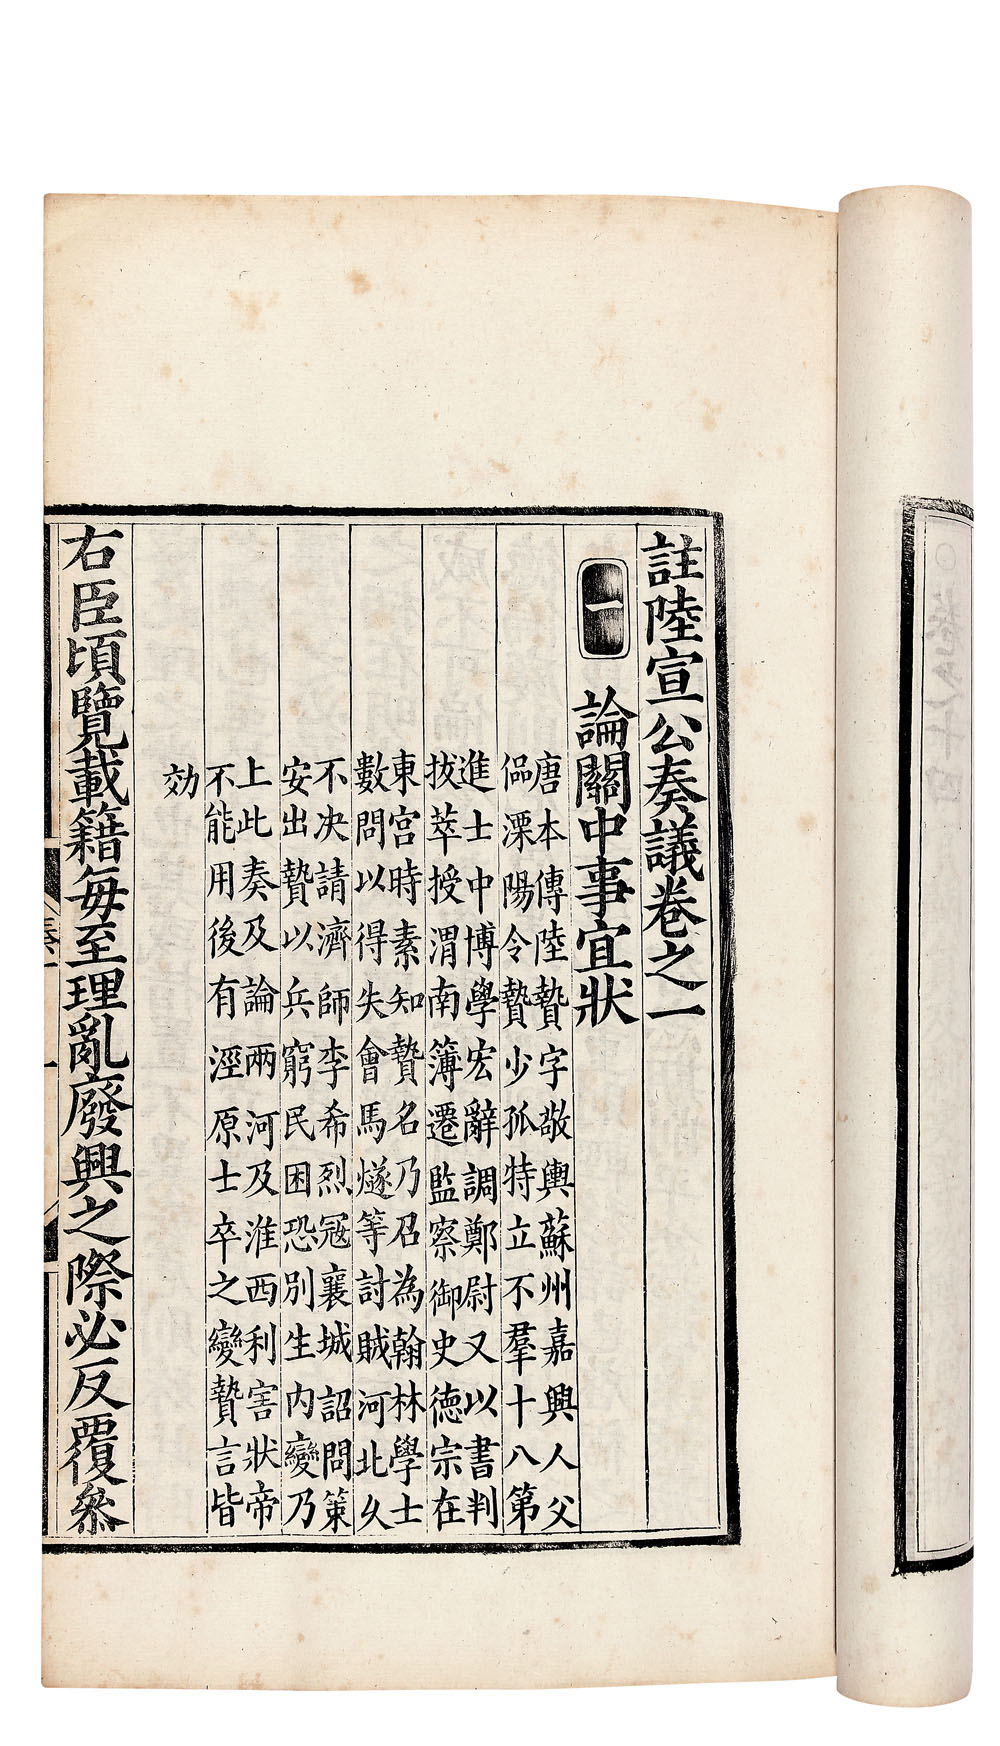 註陸宣公奏議卷之一
一
論關中事宜狀
唐本傳陸贄字敬輿蘇州嘉興人父
偘溧陽令贄少孤特立不羣十八第
進士中博學宏辭調鄭尉又以書判
拔萃授渭南簿遷監察御史德宗在
東宮時素知贄名乃召為翰林學士
數問以得失會馬燧等討賊河北乆
不决請濟師李希烈冦襄城詔問策
安出贄以兵窮民困恐別生内變乃
上此奏及論兩河及淮西利害狀帝
不能用後有涇原士卒之變贄言皆
効
右臣頃覽載籍每至理亂廢興之際必反覆叅